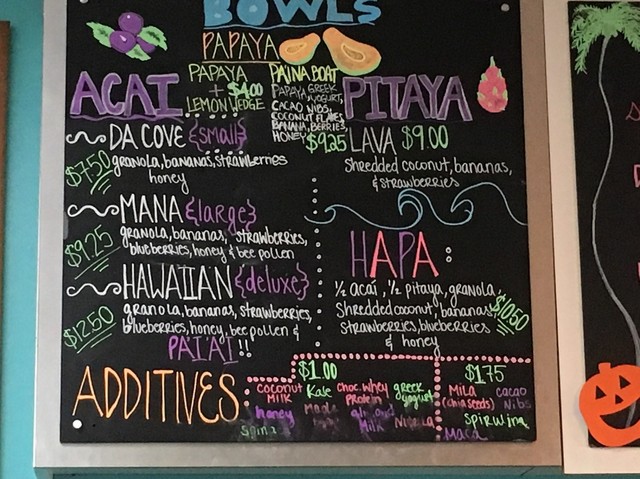 BOWLS
PAPAYA
PAPAYA
+ $4.00
LEMON WEDGE
PAINA BOAT
PAPAYA, GREEK
YOGURT,
CACAO NIBS,
COCONUT FLAKES,
BANANA, BERRIES,
HONEY $9.25
ACAI
DA COVE {small}
$7.50
granola, bananas, strawberries
honey
MANA {large}
$9.25
granola, bananas, strawberries,
blueberries, honey & bee pollen
HAWAIIAN {deluxe}
$12.50
granola, bananas, strawberries,
blueberries, honey, bee pollen &
PAI'AI!!
PITAYA
LAVA $9.00
Shredded coconut, bananas,
& strawberries
HAPA:
½ acai, ½ pitaya, granola,
Shredded coconut, bananas
$10.50
strawberries, blueberries
& honey
ADDITIVES
$1.00
coconut
Milk
Kale
choc. whey
protein
greek
yogurt
honey
Milk
$1.75
Mila
(chia seeds)
cacao
Nibs
spirulina
Maca